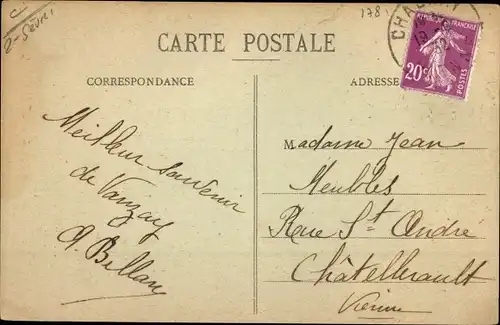 C
2-Sèvres
178
CHAUNAY
REPUBLIQUE FRANÇAISE
20c
POSTES
CARTE POSTALE
CORRESPONDANCE
ADRESSE
Meilleur souvenir
de Vanzay
Madame Jean
Meubles
Rue St André
Châtellerault
Vienne